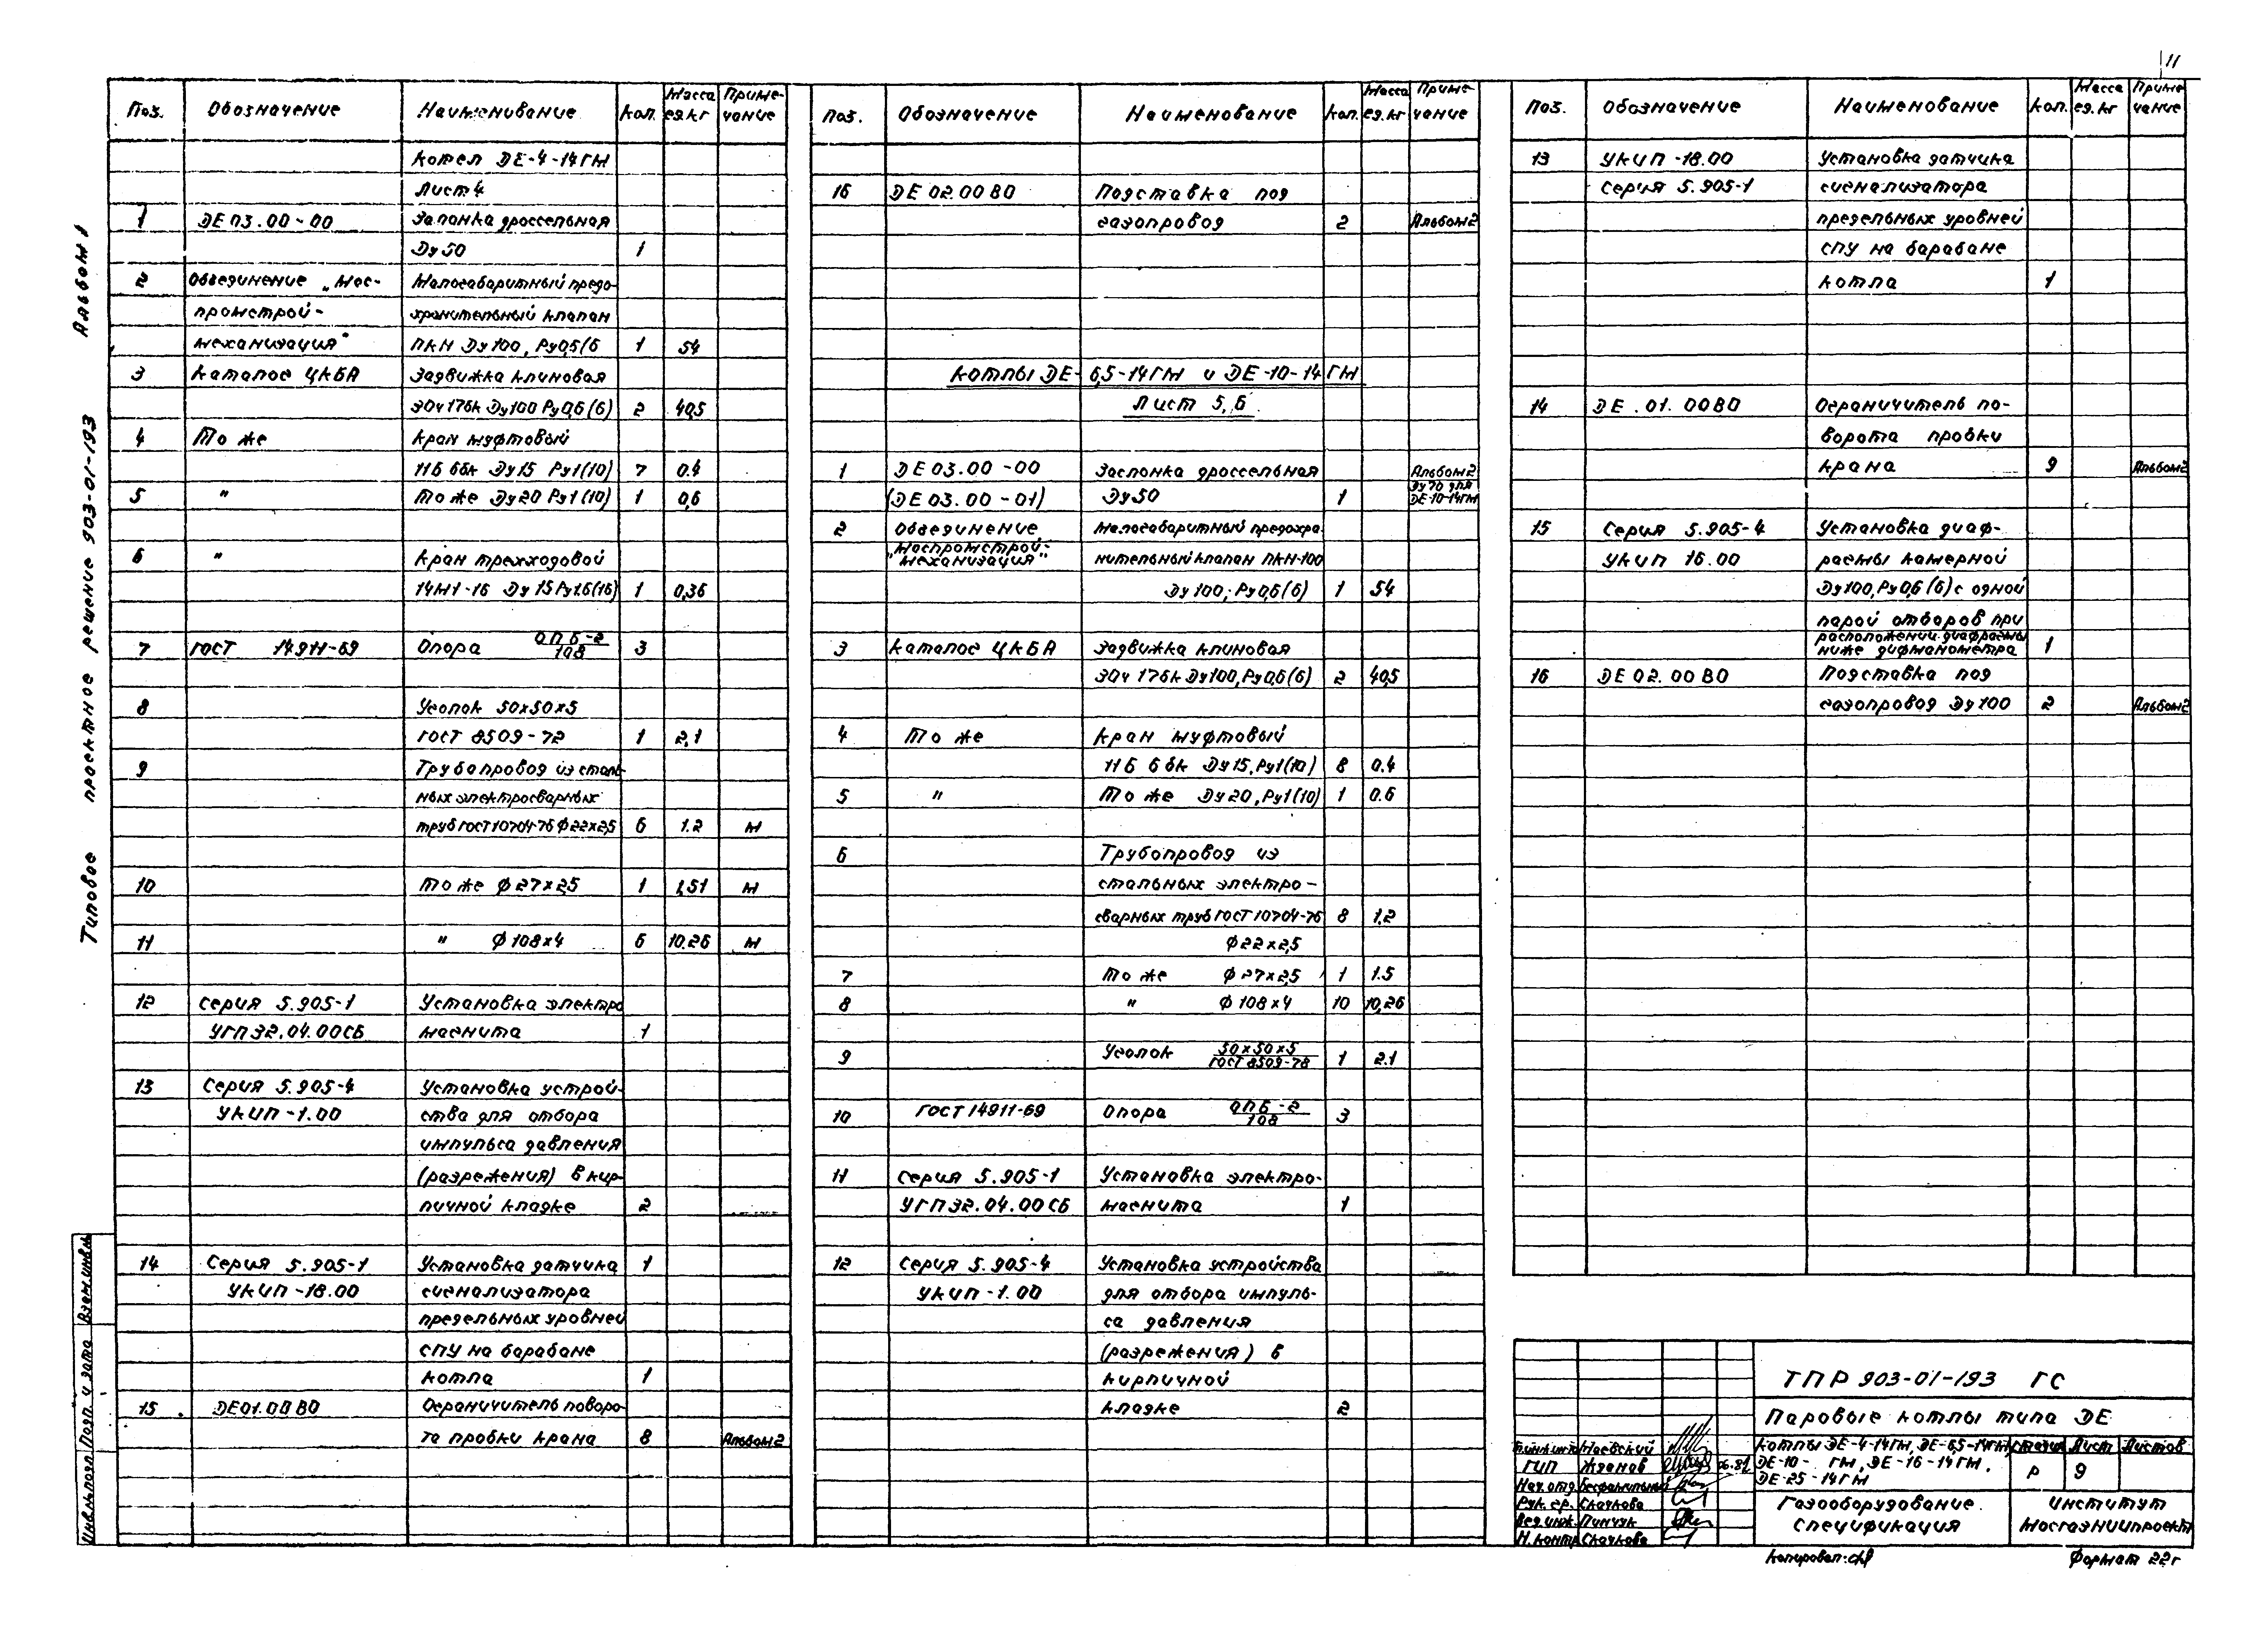 11
Альбом 1
Типовое проектное решение 903-01-193
Поз. Обозначение Наименование Кол. Масса ед.кг Приме-чание
Котел ДЕ-4-14ГМ
Лист 4
1 ДЕ 03.00-00 Заслонка дроссельная
Ду50 1
2 Объединение „Мос- Малогабаритный предо-
промстрой- хранительный клапан
механизация" ПКН Ду100, Ру0,5(6 1 54
3 Каталог ЦКБА Задвижка клиновая
30ч 17бк Ду100 Ру0,6(6) 2 40,5
4 То же Кран муфтовый
11Б 6бк Ду15 Ру1(10) 7 0.4
5 " То же Ду20 Ру1(10) 1 0,6
6 " Кран трехходовой
14М1-16 Ду15 Ру1.6(16) 1 0,36
7 ГОСТ 14911-69 Опора ОПБ-2/108 3
8 Уголок 50х50х5
ГОСТ 8509-72 1 2,1
9 Трубопровод из сталь-
ных электросварных
труб ГОСТ 10704-76 Ф22х2,5 6 1.2 м
10 То же Ф27х2,5 1 1,51 м
11 " Ф108х4 6 10.26 м
12 Серия 5.905-1 Установка электро
УГП32.04.00СБ магнита 1
13 Серия 5.905-4 Установка устрой-
УКИП-1.00 ства для отбора
импульса давления
(разрежения) в кир-
пичной кладке 2
14 Серия 5.905-1 Установка датчика 1
УКИП-18.00 сигнализатора
предельных уровней
СПУ на барабане
котла 1
15 ДЕ01.00 ВО Ограничитель поворо-
та пробки крана 8 Альбом2
Поз. Обозначение Наименование Кол. Масса ед.кг Приме-чание
16 ДЕ 02.00 ВО Подставка под
газопровод 2 Альбом2
Котлы ДЕ-6,5-14ГМ и ДЕ-10-14ГМ
Лист 5,6
1 ДЕ 03.00-00 Заслонка дроссельная Альбом2
(ДЕ 03.00-01) Ду50 1 Ду70 для ДЕ-10-14ГМ
2 Объединение Малогабаритный предохра-
„Моспромстрой- механизация" нительный клапан ПКН-100
Ду100; Ру0,6(6) 1 54
3 Каталог ЦКБА Задвижка клиновая
30ч 17бк Ду100, Ру0,6(6) 2 40,5
4 То же Кран муфтовый
11Б 6бк Ду15, Ру1(10) 8 0.4
5 " То же Ду20, Ру1(10) 1 0.6
6 Трубопровод из
стальных электро-
сварных труб ГОСТ 10704-76 8 1,2
Ф22х2,5
7 То же Ф27х2,5 1 1.5
8 " Ф108х4 10 10,26
9 Уголок 50х50х5/ГОСТ 8509-78 1 2.1
10 ГОСТ 14911-69 Опора ОПБ-2/108 3
11 Серия 5.905-1 Установка электро-
УГП32.04.00СБ магнита 1
12 Серия 5.905-4 Установка устройства
УКИП-1.00 для отбора импуль-
са давления
(разрежения) в
кирпичной
кладке 2
Поз. Обозначение Наименование Кол. Масса ед.кг Приме чание
13 УКИП-18.00 Установка датчика
Серия 5.905-1 сигнализатора
предельных уровней
СПУ на барабане
котла 1
14 ДЕ.01.00ВО Ограничитель по-
ворота пробки
крана 9 Альбом2
15 Серия 5.905-4 Установка диаф-
УКИП 16.00 рагмы камерной
Ду100, Ру0,6(6) с одной
парой отборов при
расположении диафрагмы
ниже дифманометра 1
16 ДЕ 02.00 ВО Подставка под
газопровод Ду100 2 Альбом2
ТПР 903-01-193 ГС
Паровые котлы типа ДЕ
Котлы ДЕ-4-14ГМ, ДЕ-6,5-14ГМ, Стадия Лист Листов
ДЕ-10- ГМ, ДЕ-16-14ГМ,
ДЕ-25-14ГМ Р 9
Газооборудование. Спецификация
Институт Мосгазниипроект
Маевский
ГИП Жданов 06.82
Нач.отд. Бесфамильный
Рук. гр. Скачкова
Вед.инж. Пинчук
Н.контр. Скачкова
Копировал:
Формат 22г
Инв.№ подл. Подп. и дата Взам.инв.№